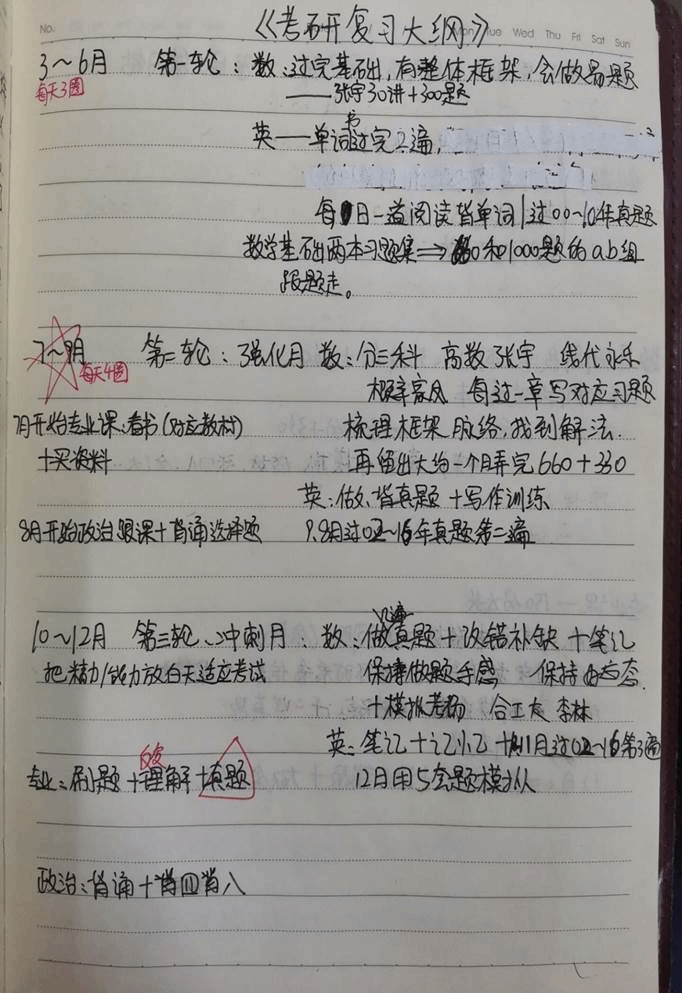 No.
Mon Tue Wed Thu Fri Sat Sun
《考研复习大纲》
3～6月 第一轮：数：过完基础，有整体框架，会做易题
每天3圈
——张宇30讲+300题
英——单词书过完2遍，
每日一篇阅读背单词|过00～10年真题
数学基础两本习题集⇒660和1000题的ab组
跟题走。
7～9月 第二轮：强化月 数：分三科 高数张宇 线代永乐
每天4圈
概率 每过一章写对应习题
7月开始专业课：看书(对应教材) 梳理框架脉络，找到解法.
+买资料 再留出大约一个月弄完660+330
英：做、背真题+写作训练
8月开始政治跟课+背诵选择题 7.8月过02～16年真题第二遍
10～12月 第三轮：冲刺月：数：做真题+改错补缺+笔记
把精力/能力放白天适应考试 保持做题手感 保持状态.
+模拟考场 合工大 李林
英：笔记+记忆+11月过02～16第3遍
专业：刷题+理解+真题 12月用5套题模拟
政治：背诵+肖四肖八